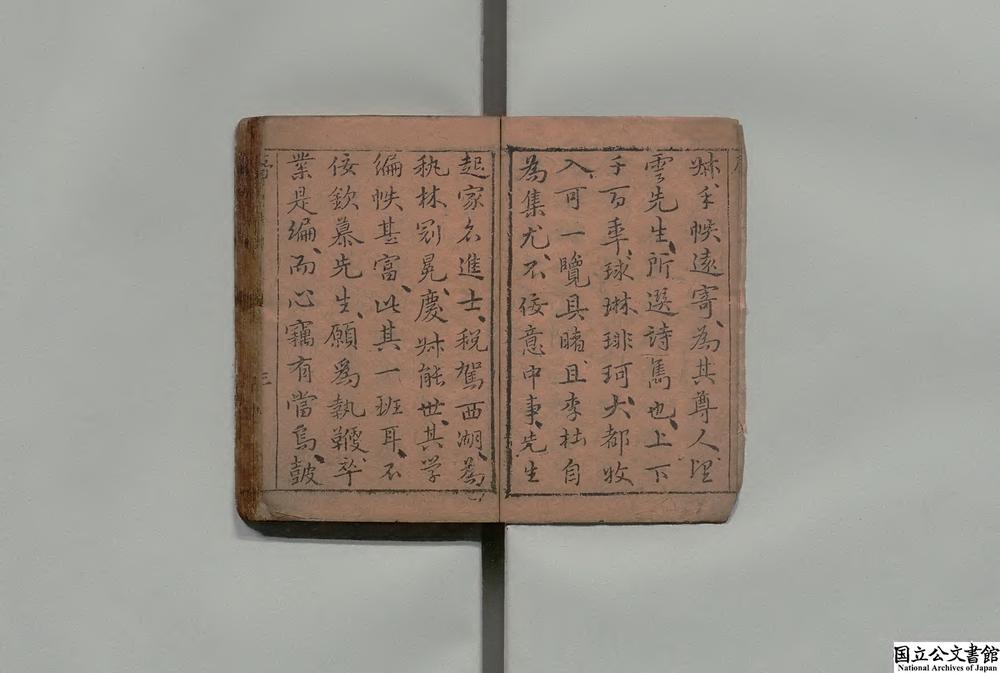 叔手帙遠寄為其尊人理
雲先生所選詩雋也上下
千百年球琳琲珂大都收
入可一覽具睹且李杜自
為集尤不佞意中事先生
起家名進士税駕西湖為
執林冠冕慶叔能世其学
編帙甚富此其一班耳不
佞欽慕先生願為執鞭卒
業是編而心竊有當焉鼓
三
国立公文書館
National Archives of Japan